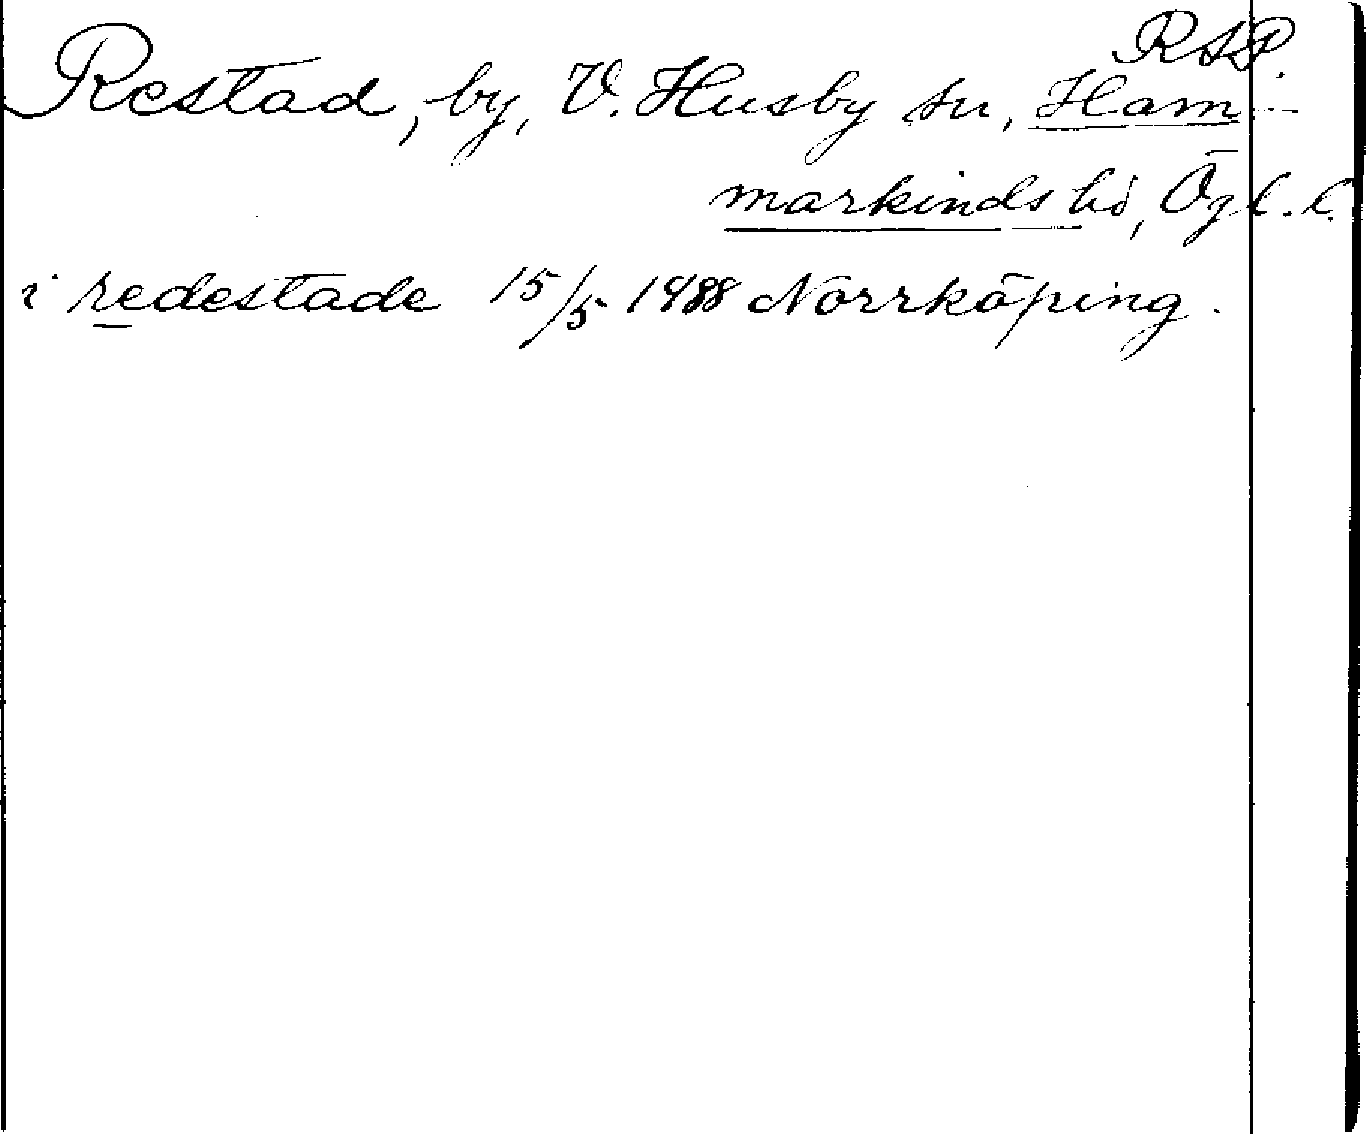 RAP.
Restad, by, V. Husby sn, Ham-
markinds hd, Ögl. l.
i redestade 15/5 1488 Norrköping.